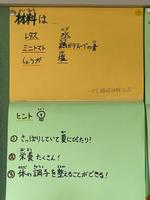 材料は
レタス 水
ミニトマト 鶏ガラスープの素
しょうが 塩
ヒント
① さっぱりしていて夏にぴったり!
② 栄養たくさん!
③ 体の調子を整えることができる!